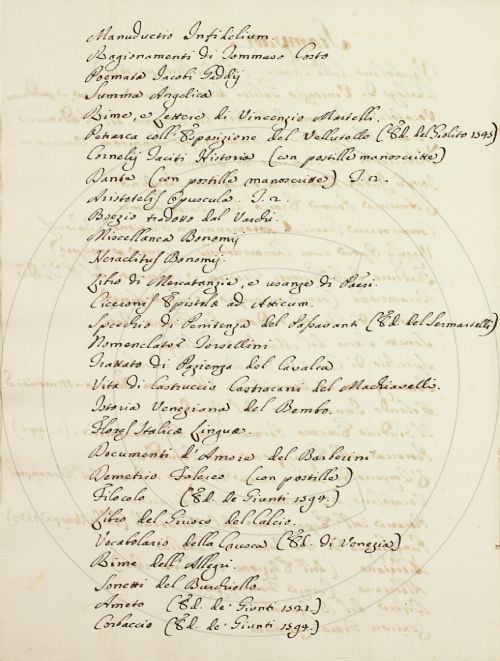 Manuductio Infidelium.
Ragionamenti di Tommaso Costo
Poemata Jacobi Gaddij
Summa Angelica
Rime, e Lettere di Vincenzio Martelli.
Petrarca coll' Esposizione del Vellutello (Ed. del Giolito 1545)
Cornelij Taciti Historia (con postille manoscritte)
Dante (con postille manoscritte) T. 2.
Aristotelis Opuscula. T. 2.
Boezio tradotto dal Varchi.
Miscellanea Bonomij
Heraclitus Bonomij.
Libro di Mercatanzie, e usanze di Paesi.
Ciceronis Epistolæ ad Atticum.
Specchio di Penitenza del Passavanti (Ed. del Sermartelli)
Nomenclator Torsellini
Trattato di Pazienza del Cavalca
Vita di Castruccio Castracani del Machiavelli.
Istoria Veneziana del Bembo.
Flores Italicæ Linguæ.
Documenti d'Amore del Barberini
Demetrio Falereo (con postille)
Filocolo (Ed. de' Giunti 1594.)
Libro del Giuoco del Calcio.
Vocabolario della Crusca (Ed. di Venezia)
Rime dell' Allegri.
Sonetti del Burchiello.
Ameto (Ed. de' Giunti 1521.)
Corbaccio (Ed. de' Giunti 1594.)